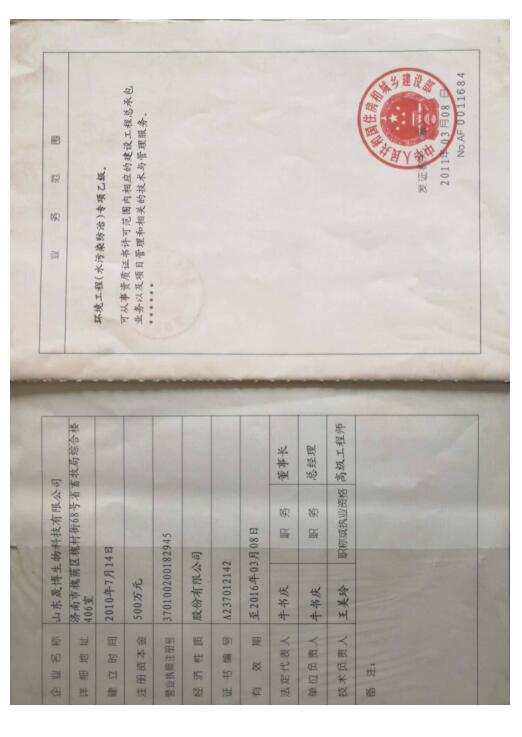 企业名称 山东晟博生物科技有限公司
详细地址 济南市槐荫区槐村街68号省畜牧局综合楼
406室
建立时间 2010年7月14日
注册资本金 500万元
营业执照注册号 370100200182945
经济性质 股份有限公司
证书编号 A237012142
有效期 至2016年03月08日
法定代表人 牛书庆 职务 董事长
单位负责人 牛书庆 职务 总经理
技术负责人 王美玲 职称或执业资格 高级工程师
备注:
业务范围
环境工程(水污染防治)专项乙级。
可从事资质证书许可范围内相应的建设工程总承包
业务以及项目管理和相关的技术与管理服务。
******
中华人民共和国住房和城乡建设部
发证
2011年03月08日
No.AF 0011684